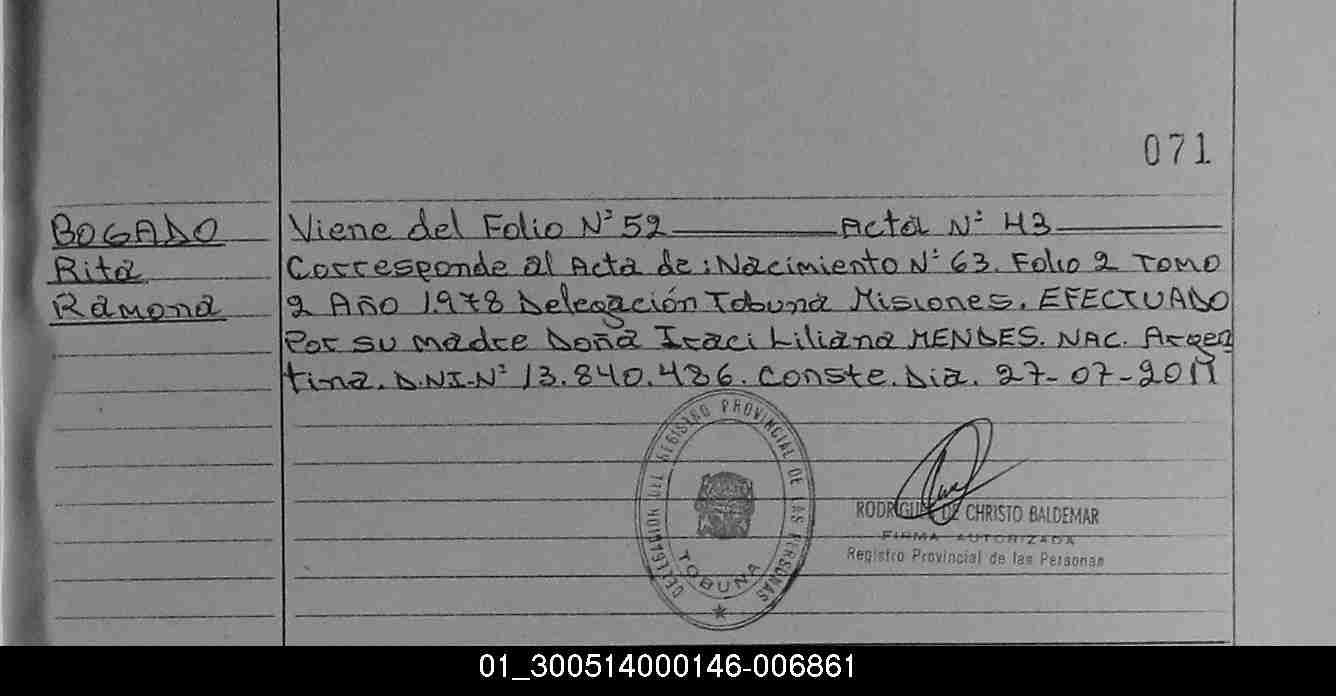 071
BOGADO
Rita
Ramona
Viene del Folio N° 52 Acta N° 43
Corresponde al Acta de: Nacimiento N° 63. Folio 2 Tomo
2 Año 1.978 Delegación Tobuna Misiones. EFECTUADO
Por su madre Doña Iraci Liliana MENDES. NAC. Argen
tina. D.N.I-N° 13.840.486. Conste. Dia. 27-07-2011
DELEGACION DEL REGISTRO PROVINCIAL DE LAS PERSONAS
TOBUNA
DE CHRISTO BALDEMAR
FIRMA AUTORIZADA
Registro Provincial de las Personas
01_300514000146-006861